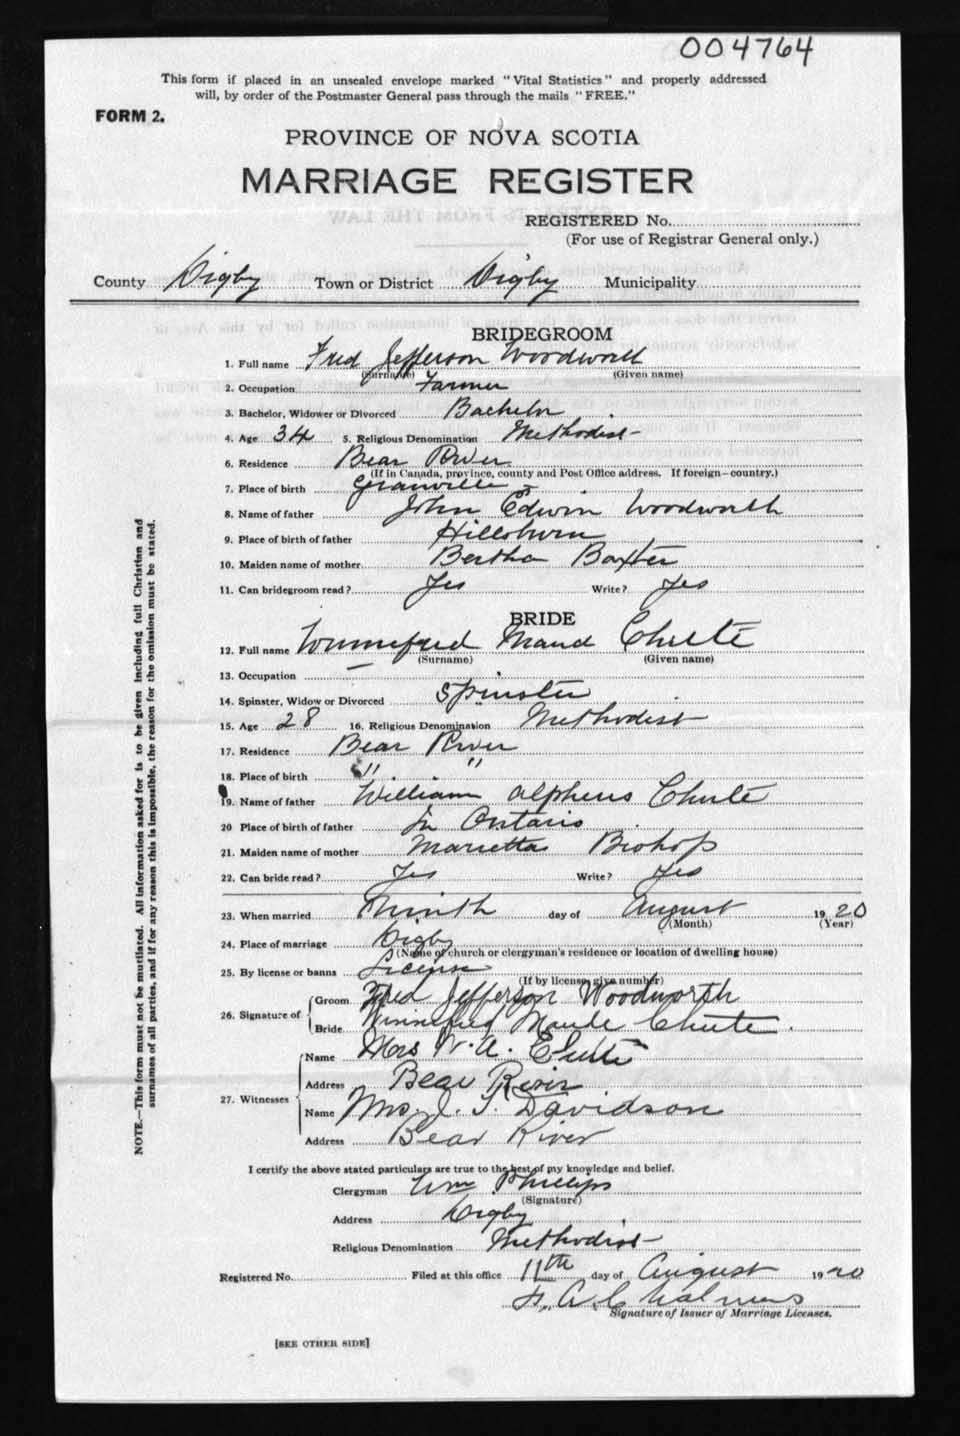 004764
This form if placed in an unsealed envelope marked "Vital Statistics" and properly addressed
will, by order of the Postmaster General pass through the mails "FREE."
FORM 2.
PROVINCE OF NOVA SCOTIA
MARRIAGE REGISTER
REGISTERED No.
(For use of Registrar General only.)
County Digby Town or District Digby Municipality
BRIDEGROOM
1. Full name Fred Jefferson Woodworth
(Surname) (Given name)
2. Occupation Farmer
3. Bachelor, Widower or Divorced Bachelor
4. Age 34 5. Religious Denomination Methodist
6. Residence Bear River
(If in Canada, province, county and Post Office address. If foreign—country.)
7. Place of birth Granville
8. Name of father John Edwin Woodworth
9. Place of birth of father Hillsburn
10. Maiden name of mother Bertha Baxter
11. Can bridegroom read? Yes Write? Yes
BRIDE
12. Full name Winnefred Maud Chute
(Surname) (Given name)
13. Occupation —
14. Spinster, Widow or Divorced Spinster
15. Age 28 16. Religious Denomination Methodist
17. Residence Bear River
18. Place of birth " "
19. Name of father William Alpheus Chute
20 Place of birth of father In Ontario
21. Maiden name of mother Marietta Bishop
22. Can bride read? Yes Write? Yes
23. When married Ninth day of August 1920
(Month) (Year)
24. Place of marriage Digby
(Name of church or clergyman's residence or location of dwelling house)
25. By license or banns License
(If by license give number)
26. Signature of Groom Fred Jefferson Woodworth
Bride Winnefred Maude Chute.
27. Witnesses Name Mrs W. A. Chute
Address Bear River
Name Mrs. J. T. Davidson
Address Bear River
I certify the above stated particulars are true to the best of my knowledge and belief.
Clergyman Wm Phillips
(Signature)
Address Digby
Religious Denomination Methodist
Registered No. Filed at this office 11th day of August 1920
H. A. Chalmers
Signature of Issuer of Marriage Licenses.
[SEE OTHER SIDE]
NOTE.—This form must not be mutilated. All information asked for is to be given including full Christian and
surnames of all parties, and if for any reason this is impossible, the reason for the omission must be stated.